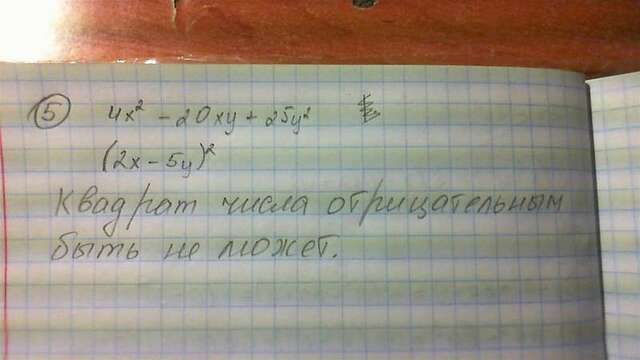 5 4x² - 20xy + 25y²
(2x - 5y)²
Квадрат числа отрицательным
быть не может.